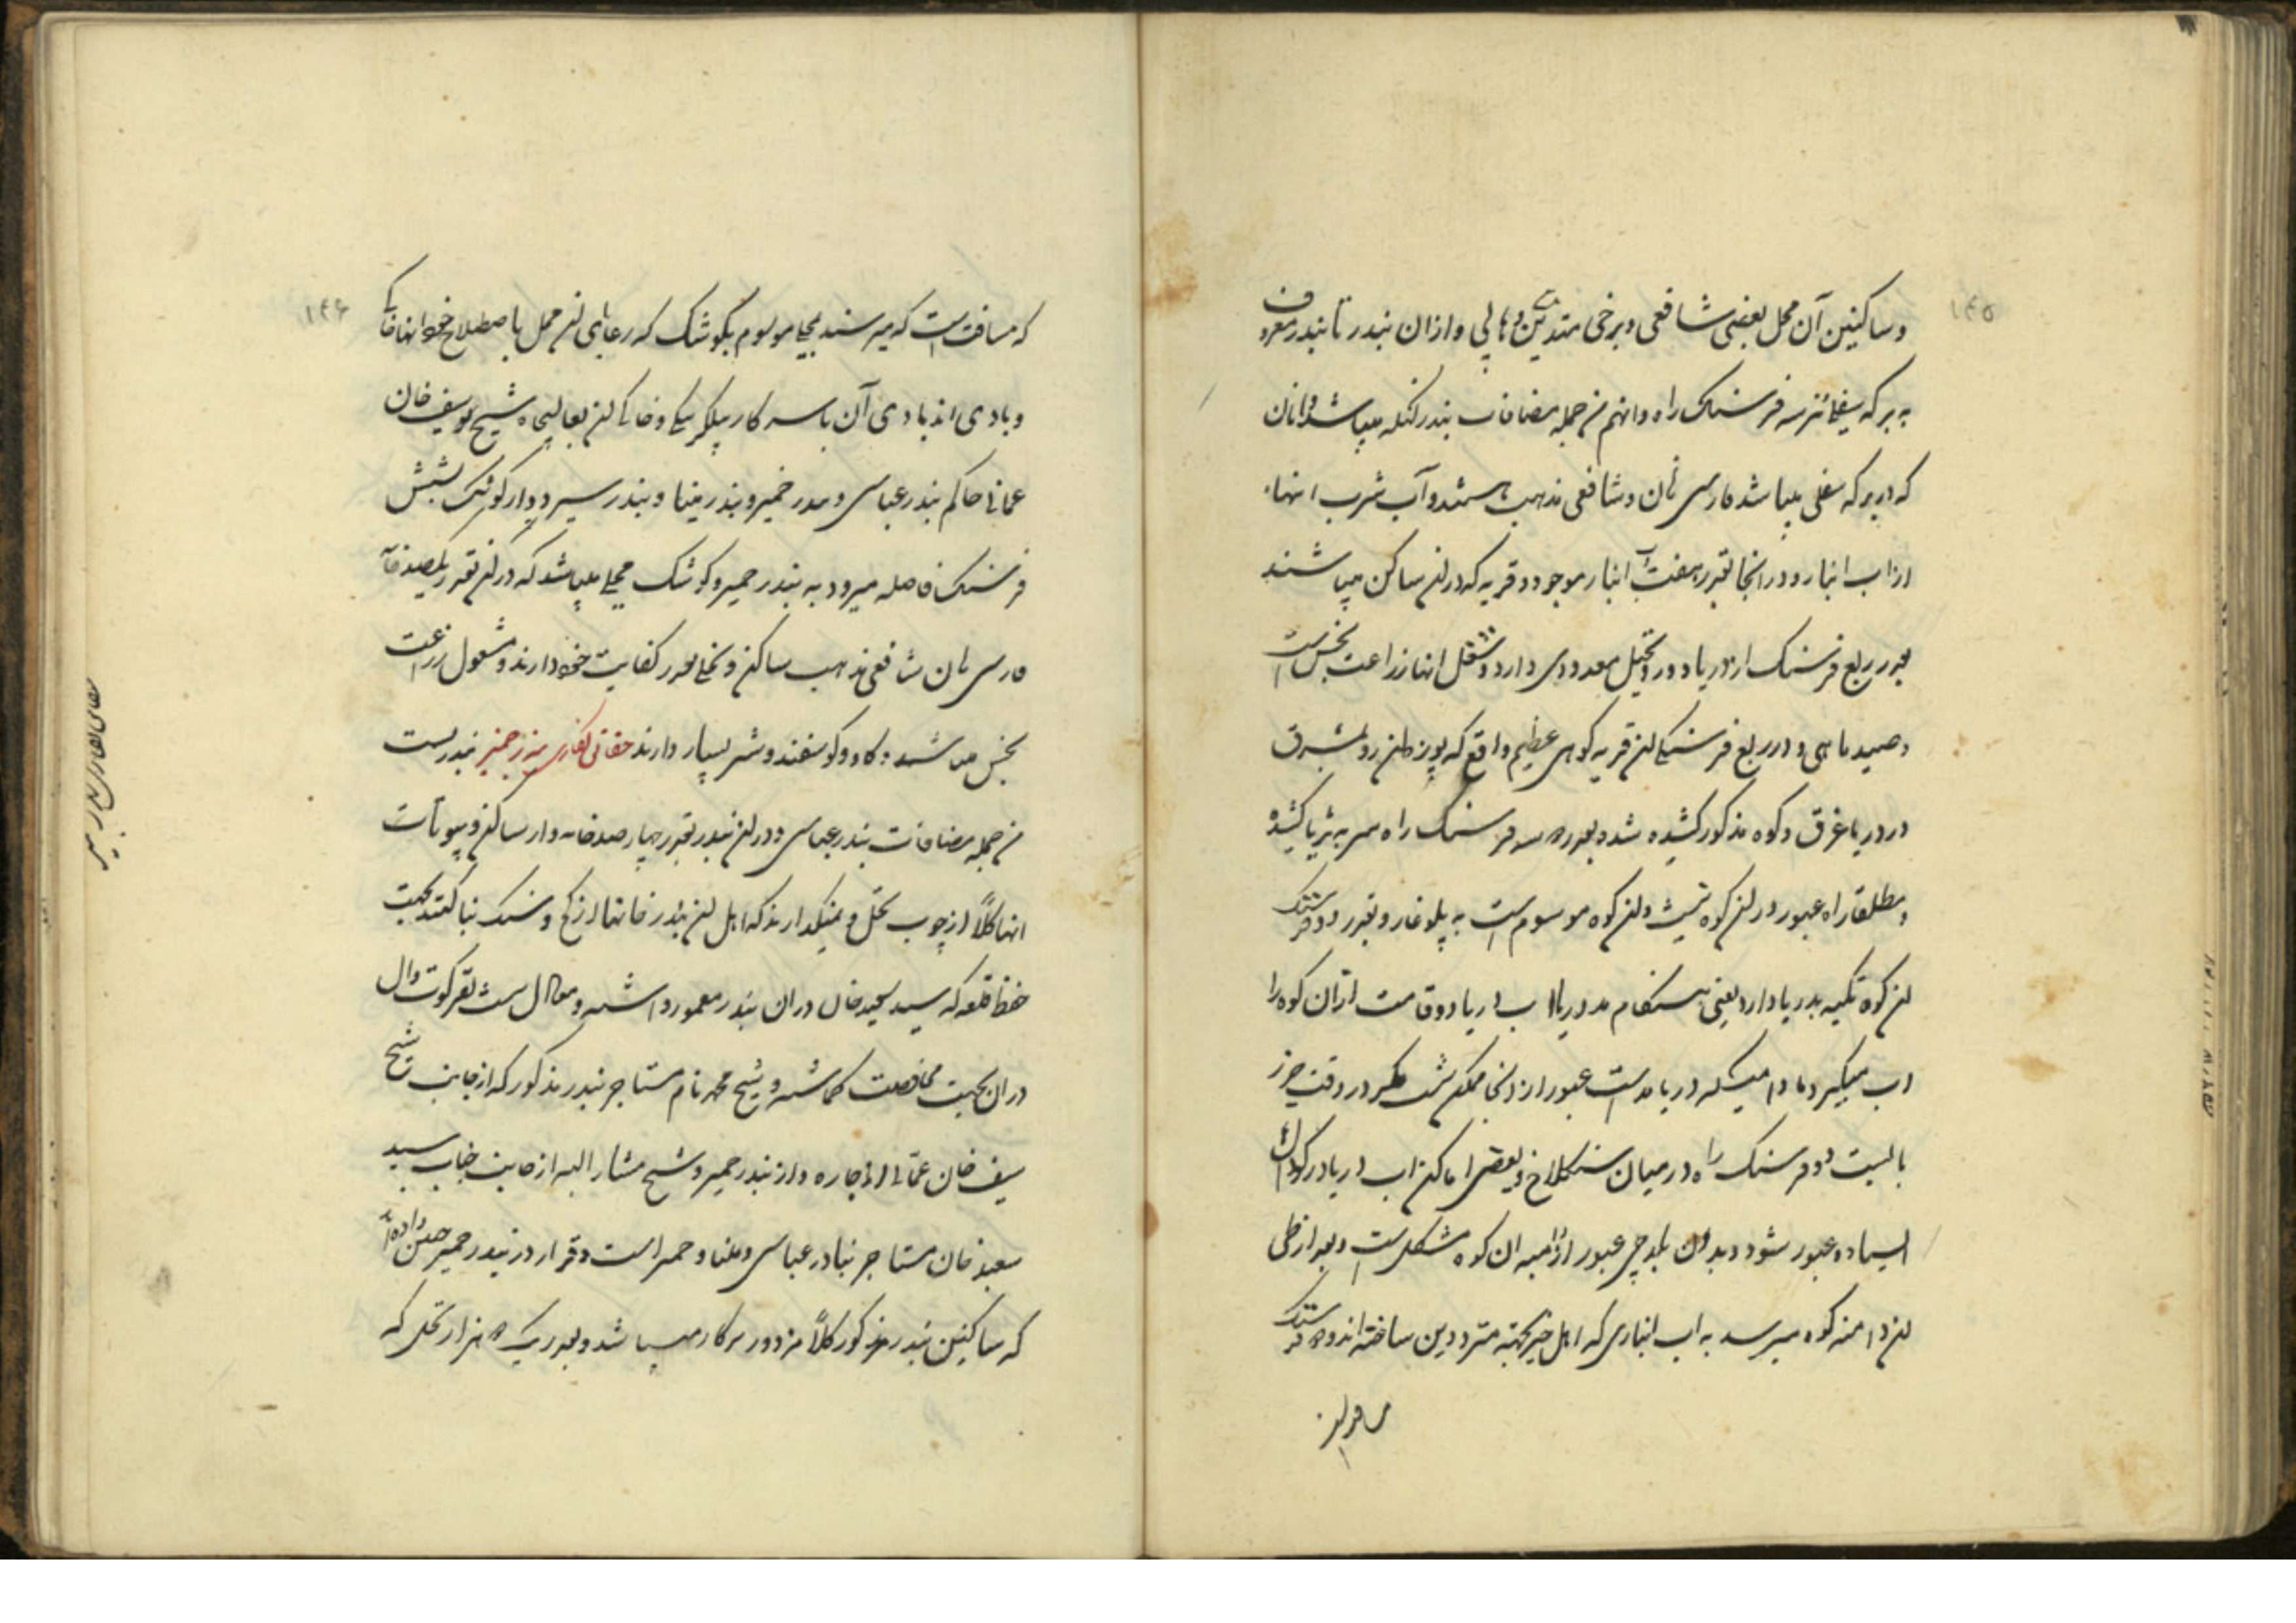 ۱۴۵
وساکنین آن محل بعضی شافعی و برخی متدین وهابی و ازان بندر تا بندر معروف
به برکه سفلی نیز سه فرسنگ راه و انهم من جمله مضافات بندر لنگه میباشد و انان
که در برکه سفلی میباشد فارسی زبان و شافعی مذهب هستند و آب شرب انها
از اب انبار و در انجا بقدر هفت آب انبار موجود و قریه که در آن ساکن میباشند
بقدر ربع فرسنگ از دریا دور و نخیل معدودی دارد و شغل انها زراعت بخس است
و صید ماهی و در ربع فرسنگی آن قریه کوهی عظیم واقع که پوز آن رو بمشرق
در دریا غرق و کوه مذکور کشیده شده بقدر سه فرسنگ راه سر به ثریا کشیده
و مطلقا راه عبور در آن کوه نیست و آن کوه موسوم است به پلوغار و بقدر دو فرسنگ
آن کوه تکیه بدریا دارد یعنی هنگام مد دریا اب دریا دو قامت ازان کوه را
اب میگیرد مادامیکه دریا مد است عبور از انجا ممکن نیست مگر در وقت جزر
بایست دو فرسنگ راه در میان سنگلاخ و بعضی اماکن اب دریا در گودال
ایستاده عبور شود و بدون بلدچی عبور از دامنه ان کوه مشکل است و بعد از طی
آن دامنه کوه میرسد به اب انباری که اهل خیر بجهته مترددین ساخته اند و فرسنگ
مسافت
۱۴۶
که مسافت است که میرسند بمحلی موسوم بگوشک که رعایای آن محل باصطلاح خود انها
و بادی اند بادی آن با سرکار بیگلربیگی و خاکی آن بعالیجاه شیخ یوسف خان
عمانی حاکم بندر عباسی و بندر خمیر و بندر مینا و بندر سیریک و از کوشک بشش
فرسنگ فاصله میرود به بندر خمیر و کوشک محلی میباشد که در آن بقدر یکصد خانه
فارسی زبان شافعی مذهب ساکن و نخلی بقدر کفایت خود دارند و مشغول زراعت
بخس میباشند و گاو و گوسفند و شتر بسیار دارند بندر خمیر بندریست
من جمله مضافات بندر عباسی و در آن بندر بقدر چهار صد خانه وار ساکن و بیوتات
انها کلاً از چوب نخل و نمیگذارند که اهل آن بندر خانها از گچ و سنگ بنا کنند بجهت
حفظ قلعه که سید سعید خان دران بندر معمور داشته و معادل شصت نفر کوت وال
دران بجهت محافظت گماشته و شیخ محمد نام مستاجر بندر مذکور که از جانب شیخ
سیف خان عمانی اجاره دار بندر خمیر و شیخ مشار الیه از جانب جناب سید
سعید خان مستاجر بنادر عباسی و مینا و خمیر است و قرار در بندر خمیر چنین داده اند
که ساکنین بندر مذکور کلاً مزدور سرکار میباشد و بقدر یک هزار نخلی که